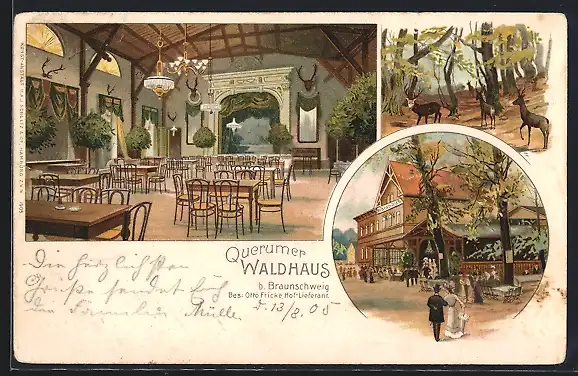 Querumer
WALDHAUS
b. Braunschweig
Bes: Otto Fricke, Hof-Lieferant.
Die herzlichsten
Grüße sendet Euch
der Familie Müller
d. 13/8. 05